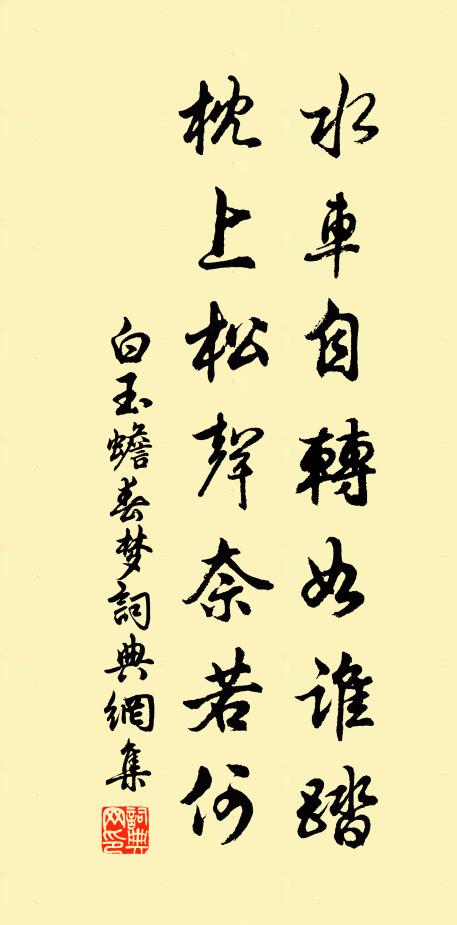 水車自轉如誰踏
枕上松聲奈若何
白玉蟾春梦詞典網集
詞典
网印